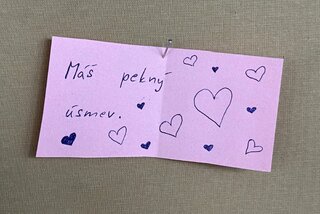 Máš pekný
úsmev.